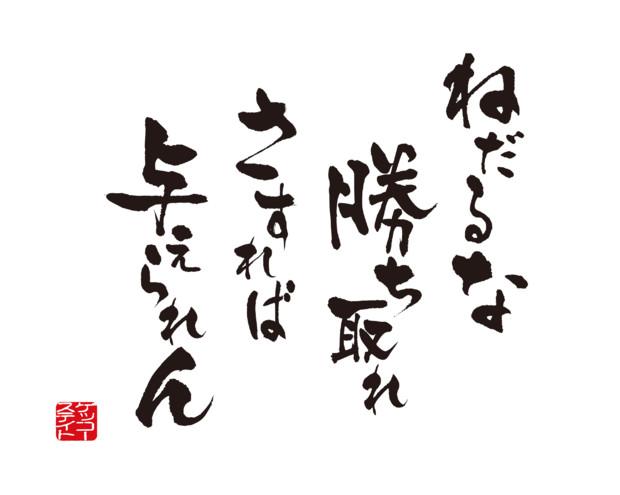 ねだるな
勝ち取れ
さすれば
与えられん
ゲッコー
ステイト